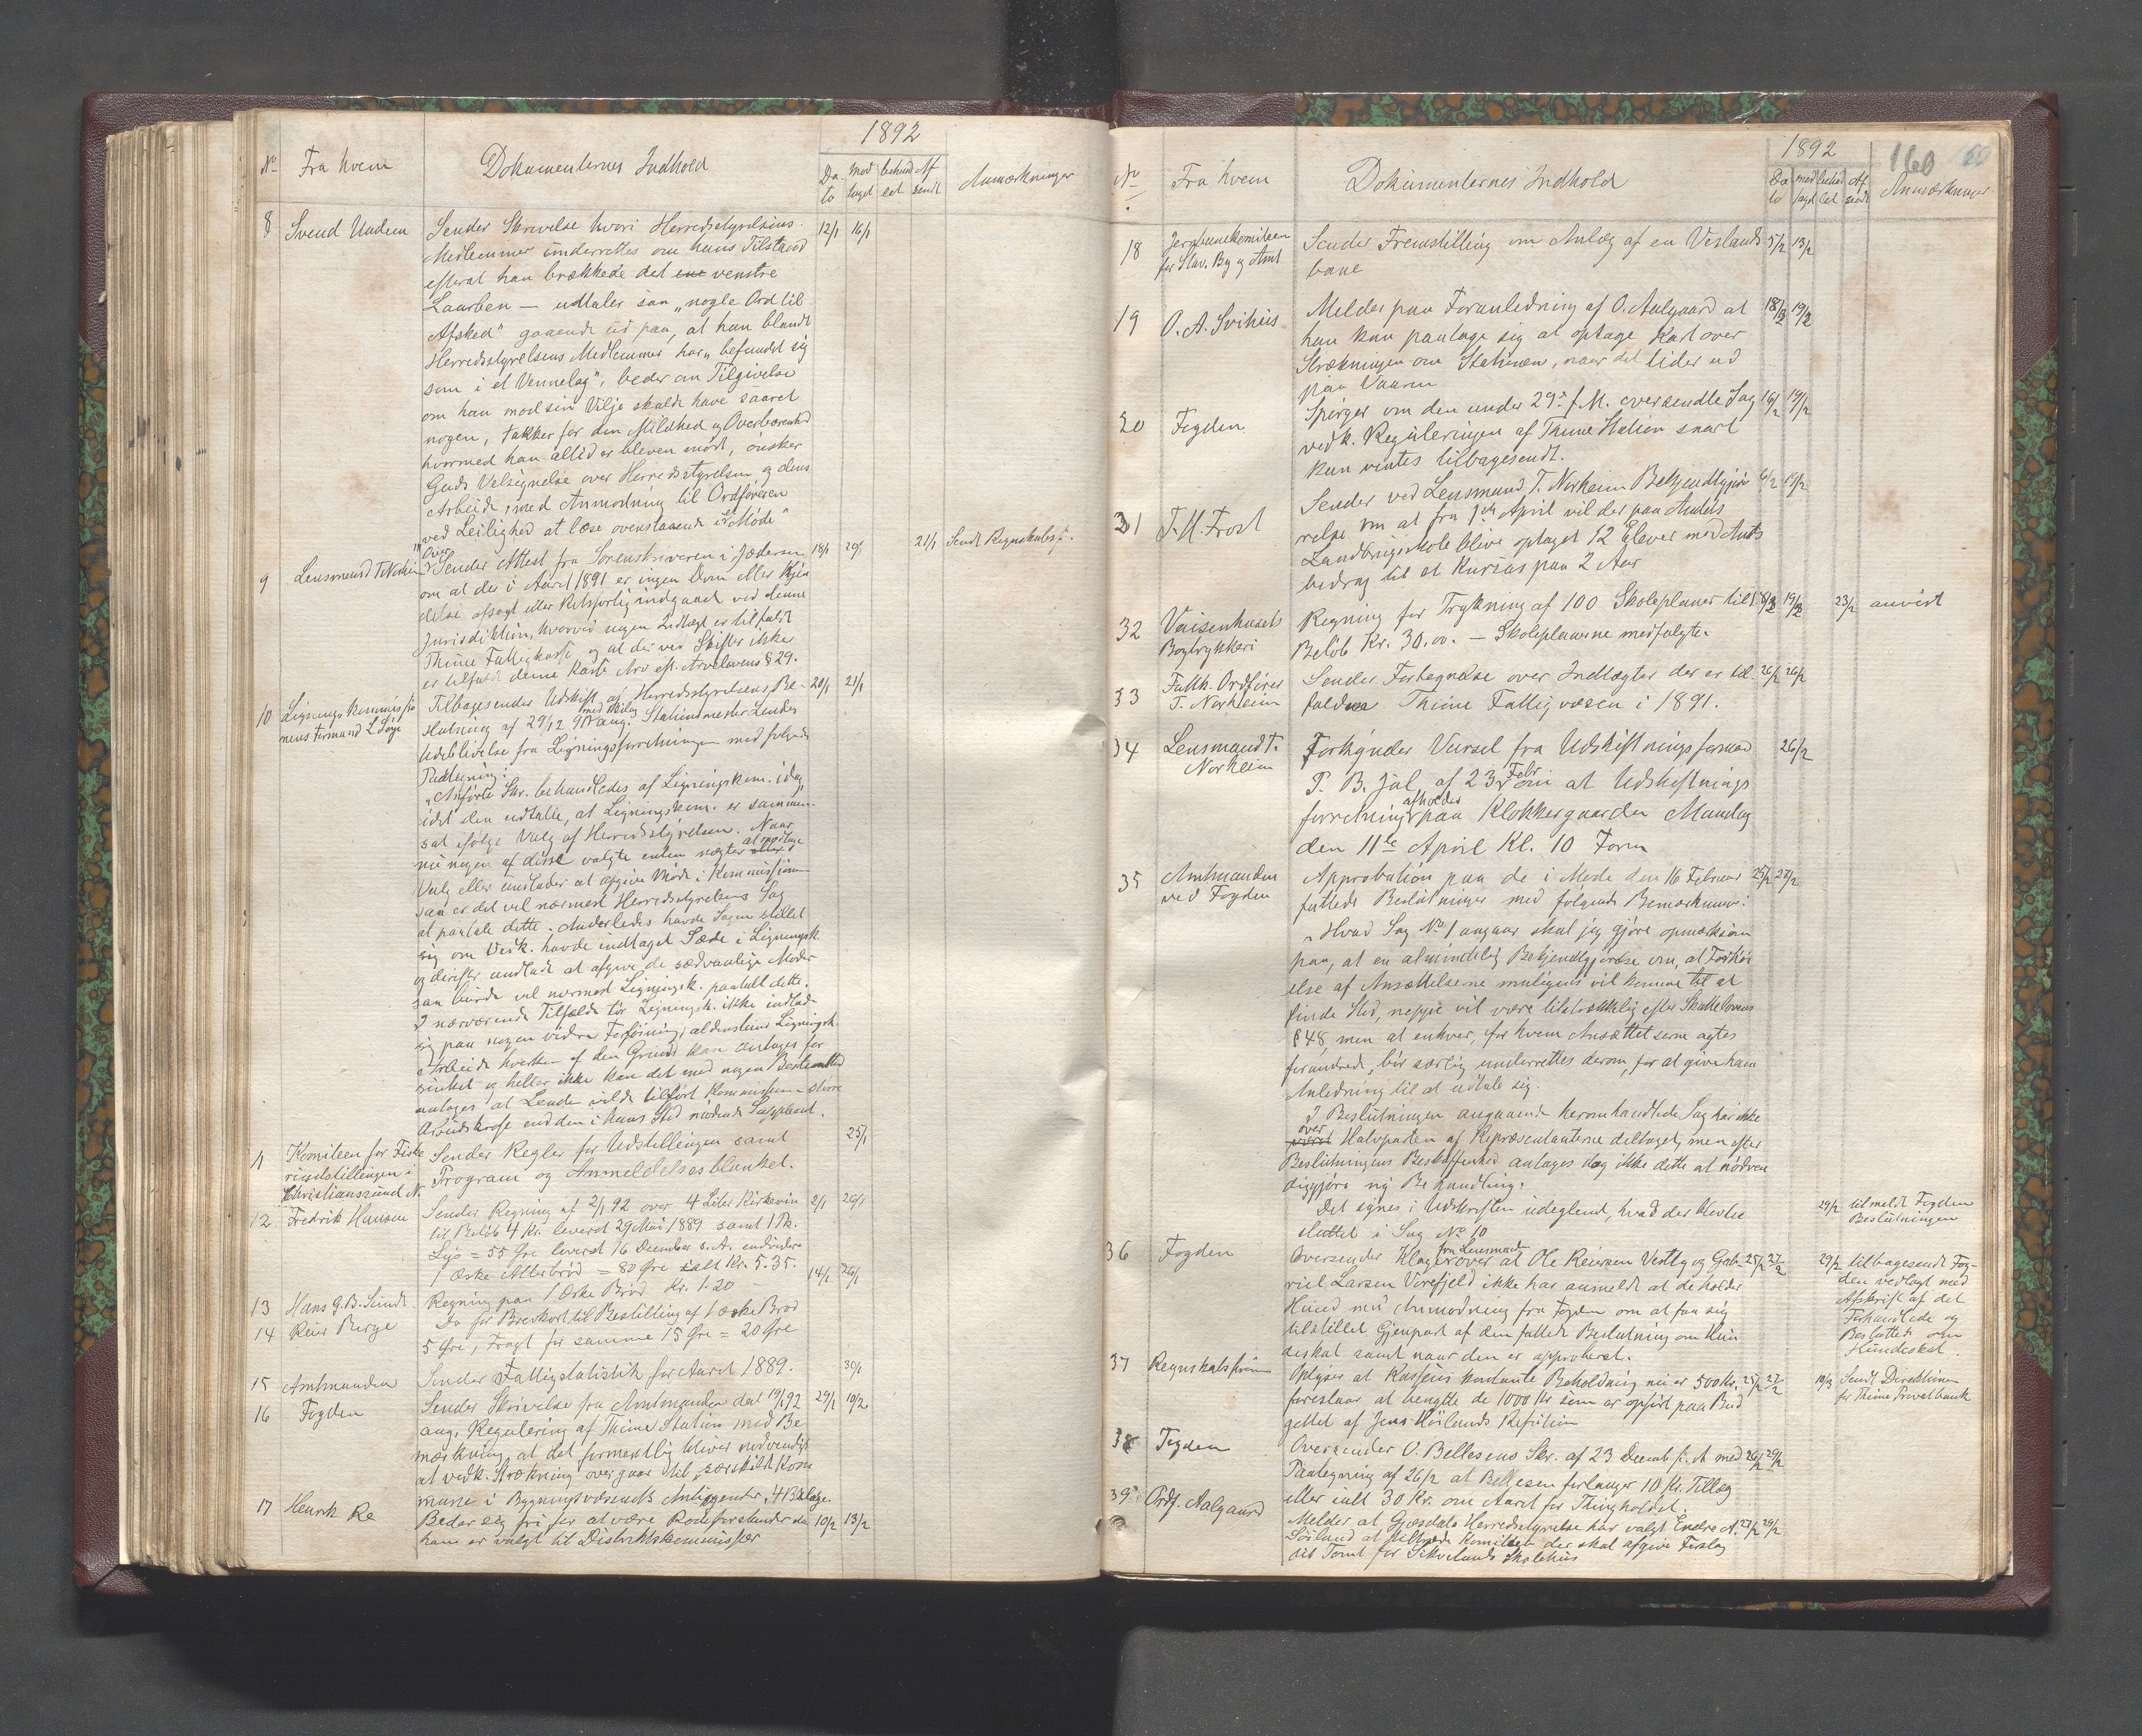 1892
No Fra hvem Dokumenternes Indhold Da to mod taget behand let Af sendt Anmærkninger
8 Svend Undem Sender Skrivelse hvori Herredsstyrelsens 12/1 16/1
Medlemmer underrettes om hans Tilstand
efterat han brækkede det ene venstre
Laarben — udtaler saa "nogle Ord til
Afsked" gaaende ud paa, at han blandt
Herredsstyrelsens Medlemmer har "befundet sig
som i et Vennelag", beder om Tilgivelse
om han mod sin Vilje skulde have saaret
nogen, takker for den Mildhed og Overbærenhed
hvormed han altid er bleven mødt, ønsker
Guds Velsignelse over Herredsstyrelsen og dens
Arbeide, med Anmodning til Ordføreren
ved Leilighed at læse ovenstaaende i et Møde"
9 Lensmand T. Norheim Sender Attest fra Sorenskriveren i Jæderen 18/1 20/1 21/1 Sendt Regnskabsf.
om at der i Aaret 1891 er ingen Dom eller Kjen
delse afsagt eller Retsforlig indgaaet ved denne
Jurisdiktion, hvorved nogen Indtægt er tilfaldt
Thime Fattigkasse og at der ved Skifter ikke
er tilfaldt denne Kasse Arv eft. Arvelovens § 29.
10 Ligningskommissio Tilbagesender Udskrift af Herredsstyrelsens Be- 20/1 21/1
nens Formand L. Sørge slutning af 29/12 91 med Bilag ang. Stationsmester Lendes
Udeblivelse fra Ligningsforretningen med følgende
Paategning:
"Anførte Skr. behandledes af Ligningskom. idag,
idet den udtalte, at Ligningskom. er sammen-
sat ifølge Valg af Herredsstyrelsen. Naar
nu nogen af disse valgte enten nægter at modtage
Valg eller undlader at afgive Møde i Kommissionen
saa er det vel nærmest Herredsstyrelsens Sag
at paatale dette. Anderledes havde Sagen stillet
sig om Vedk. havde indtaget Sæde i Ligningsk.
og derefter undladt at afgive de sædvanlige Møder
saa burde vel nærmest Ligningsk. paatalt dette.
I nærværende Tilfælde tør Ligningsk. ikke indlade
sig paa nogen videre Forføining, aldenstund Ligningsk.
Arbeide hverken af den Grund kan antages for
sinket og heller ikke kan det med nogen Bestemthed
antages at Lende vilde tilført Kommissionen større
Arbeidskraft end den i hans Sted mødende Suppleant.
11 Komiteen for Fiske Sender Regler for Udstillingen samt 25/1
riudstillingen i Program og Anmeldelsesblanket.
Christianssund N.
12 Fredrik Hansen Sender Regning af 2/1 92 over 4 Liter Kirkevin 2/1 26/1
til Beløb 4 Kr. leveret 29 Mai 1889 samt 1 Pk.
Lys = 55 Øre leveret 16 December s. A. endvidere
1 Æske Alterbrød = 80 Øre ialt Kr. 5.35.
13 Hans G. B. Sundt Regning paa 1 Æske Brød Kr. 1.20 14/1 26/1
14 Reier Berge Do for Brevkort til Bestilling af 1 Æske Brød
5 Øre, Fragt for samme 15 Øre = 20 Øre
15 Amtmanden Sender Fattigstatistik for Aaret 1889. 30/1
16 Fogden Sender Skrivelse fra Amtmanden dat 19/1 92 29/1 10/2
ang. Regulering af Thime Station med Be
mærkning, at det formentlig bliver nødvendigt
at vedk. Strækning overgaar til særskilt Kom
mune i Bygningsvæsenets Anliggender, 4 Bilage.
17 Henrik Re Beder sig fri for at være Rodeforstander da 10/2 13/2
han er valgt til Distriktskommissær
1892 160
No Fra hvem Dokumenternes Indhold Da to mod taget behand let Af sendt Anmærkninger
18 Jernbanekomiteen Sender Fremstilling om Anlæg af en Vestlands 5/2 13/2
for Stav. By og Amt bane
19 O. A. Svihus Melder paa Foranledning af O. Aalgaard at 18/2 19/2
han kan paatage sig at optage Kart over
Strækningen om Stationen, naar det lider ud
paa Vaaren
20 Fogden Spørger om den under 29de f. M. oversendte Sag 16/2 19/2
vedk. Reguleringen af Thime Station snart
kan ventes tilbagesendt.
31 T. H. Frost Sender ved Lensmand T. Norheim Bekjendtgjø 6/2 19/2
relse om at fra 1ste April vil der paa Amtets
Landbrugsskole blive optaget 12 Elever med Amts
bidrag til et Kursus paa 2 Aar
32 Vaisenhusets Regning for Trykning af 100 Skoleplaner til 18/2 19/2 23/2 anvist
Bogtrykkeri Beløb Kr. 30.00. — Skoleplanerne medfulgte.
33 Fattk. Ordfører Sender Fortegnelse over Indtægter der er til- 26/2 26/2
T. Norheim faldne Thime Fattigvæsen i 1891.
34 Lensmand T. Forkynder Varsel fra Udskiftningsformand 26/2
Norheim T. B. Jul af 23 Febr om at Udskiftnings
forretning afholdes paa Klokkergaarden Mandag
den 11te April Kl. 10 Form
35 Amtmanden Approbation paa de i Møde den 16 Februar 25/2 27/2
ved Fogden fattede Beslutninger med følgende Bemærkning:
"Hvad Sag No 1 angaar skal jeg gjøre opmærksom
paa, at en almindelig Bekjendtgjørelse om, at Forhøi
else af Ansættelserne muligens vil komme til at
finde Sted, neppe vil være tilstrækkelig efter Skattelovens
§ 48, men at enhver, for hvem Ansættelserne agtes
forandrede, bør særlig underrettes derom, for at give ham
Anledning til at udtale sig.
I Beslutningen angaaende heromhandlede Sag har ikke
været over Halvparten af Repræsentanterne deltaget, men efter
Beslutningens Beskaffenhed antages dog ikke dette at nødven
diggjøre ny Behandling.
Det synes i Udskriften udeglemt, hvad der blev be 29/2 tilmeldt Fogden
sluttet i Sag No 10 Beslutningen
36 Fogden Oversender Klage fra Lensmand over at Ole Reiersen Vestly og Gab- 25/2 27/2 29/2 tilbagesendt Fog-
riel Larsen Varefjeld ikke har anmeldt at de holder den vedlagt med
Hund med Anmodning fra Fogden om at faa sig Afskrift af det
tilstillet Gjenpart af den fattede Beslutning om Hun Forhandlede og
deskat samt naar den er approberet. Besluttede om
Hundeskat.
37 Regnskabsfører Oplyser at Kassens kontante Beholdning nu er 500 Kr, 25/2 27/2 10/3 Sendt Direktionen
foreslaar at benytte de 1000 Kr som er opført paa Bud for Thime Privatbank
gettet af Jens Høilands Refusion
38 Fogden Oversender O. Bellesens Skr. af 23 Decemb f. A med 26/2 29/2
Paategning af 26/2 at Bellesen forlanger 10 Kr. Tillæg
eller ialt 30 Kr. om Aaret for Thingholdet.
39 Ordf. Aalgaard Melder at Gjæsdals Herredsstyrelse har valgt Endre A. 27/2 29/2
at tiltræde Komiteen der skal afgive Forslag
til Tomt for Sikvelands Skolehus